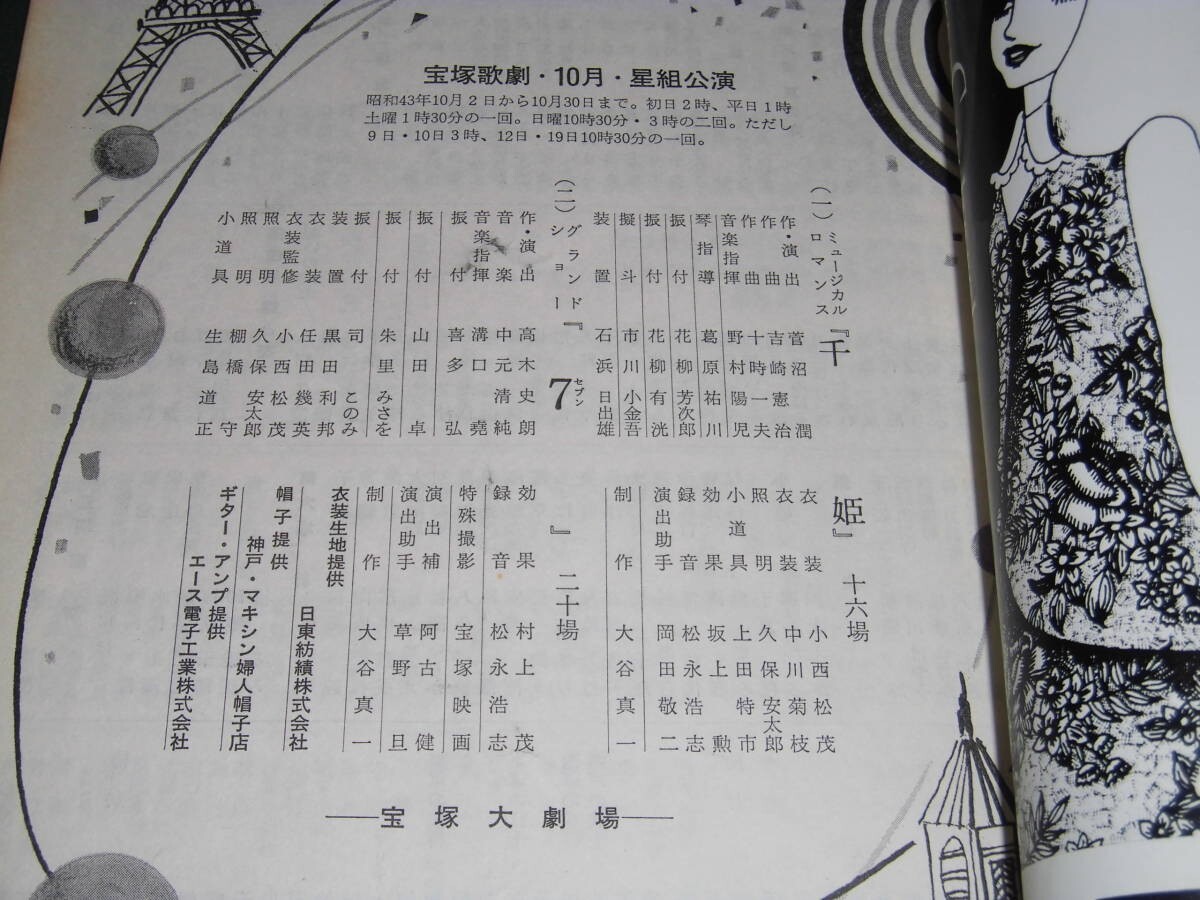 宝塚歌劇・10月・星組公演
昭和43年10月2日から10月30日まで。初日2時、平日1時
土曜1時30分の一回。日曜10時30分・3時の二回。ただし
9日・10日3時、12日・19日10時30分の一回。
(一)ミュージカルロマンス『千姫』十六場
作・演出 菅沼潤
作曲 吉崎憲治
作曲 十時一夫
音楽指揮 野村陽児
琴指導 葛原祐川
振付 花柳芳次郎
振付 花柳有洸
擬斗 市川小金吾
装置 石浜日出雄
衣装 小西松茂
衣装 中川菊枝
照明 久保安太郎
小道具 上田特市
効果 坂上勲
録音 松永浩志
演出助手 岡田敬二
制作 大谷真一
(二)グランドショー『7』二十場
セブン
作・演出 高木史朗
音楽 中元清純
音楽指揮 溝口堯
振付 喜多弘
振付 山田卓
振付 朱里みさを
振付 司このみ
装置 黒田利邦
衣装 任田幾英
衣装監修 小西松茂
照明 久保安太郎
照明 棚橋守
小道具 生島道正
効果 村上茂
録音 松永浩志
特殊撮影 宝塚映画
演出補 阿古健
演出助手 草野旦
制作 大谷真一
衣装生地提供
日東紡績株式会社
帽子提供
神戸・マキシン婦人帽子店
ギター・アンプ提供
エース電子工業株式会社
―宝塚大劇場―